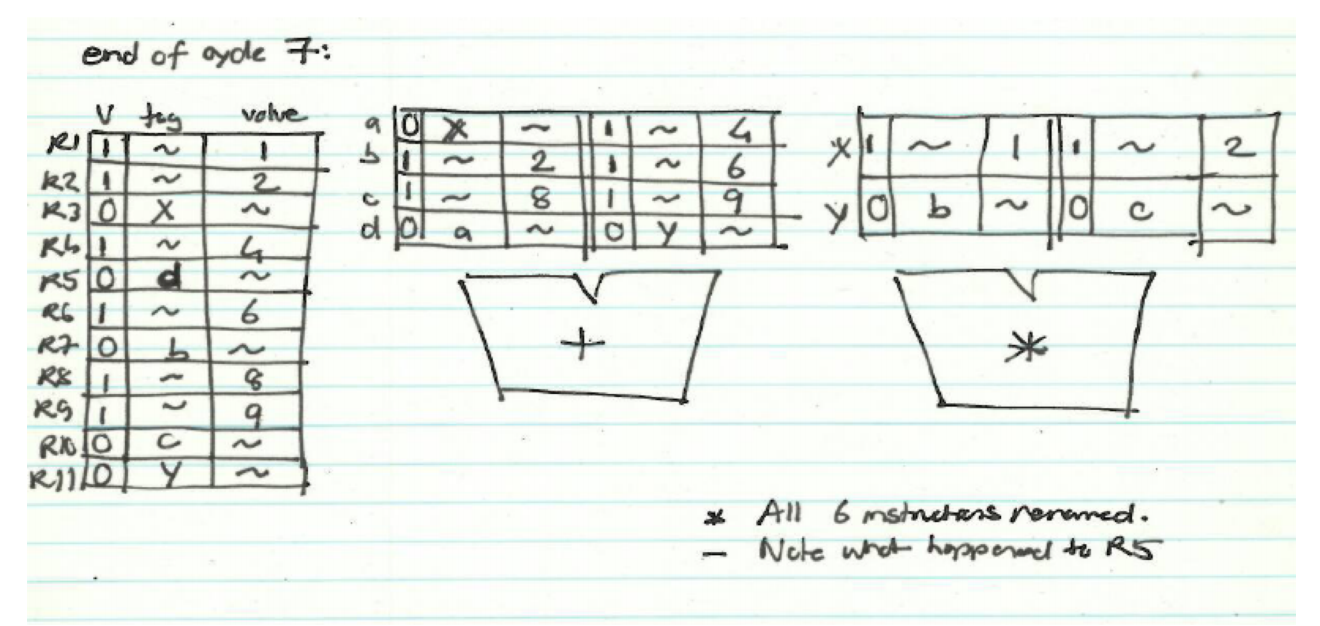 end of cycle 7:
V tag value
R1 1 ~ 1
R2 1 ~ 2
R3 0 X ~
R4 1 ~ 4
R5 0 d ~
R6 1 ~ 6
R7 0 b ~
R8 1 ~ 8
R9 1 ~ 9
R10 0 c ~
R11 0 Y ~
a 0 X ~ 1 ~ 4
b 1 ~ 2 1 ~ 6
c 1 ~ 8 1 ~ 9
d 0 a ~ 0 Y ~
+
X 1 ~ 1 1 ~ 2
Y 0 b ~ 0 c ~
*
* All 6 instructions renamed.
- Note what happened to R5